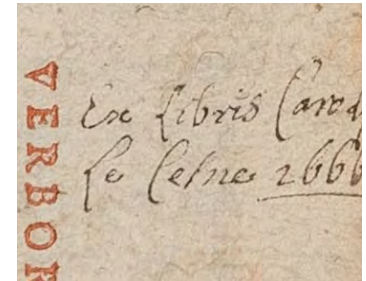 VERBOR
Ex Libris Caro
Le Cesne 1666